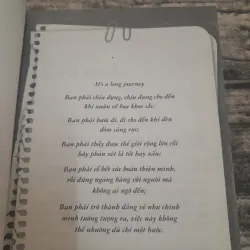 It's a long journey
Bạn phải chịu đựng, chịu đựng cho đến
khi xuân về hoa khoe sắc;
Bạn phải bước đi, đi cho đến khi đèn
đóm sáng rực;
Bạn phải thấy được thế giới rộng lớn rồi
hãy phán xét là tốt hay xấu;
Bạn phải cố hết sức hoàn thiện mình,
rồi đứng ngang hàng với người mà
không ai ngờ đến;
Bạn phải trở thành dáng vẻ như chính
mình tưởng tượng ra, việc này không
thể nhường dù chỉ một bước.